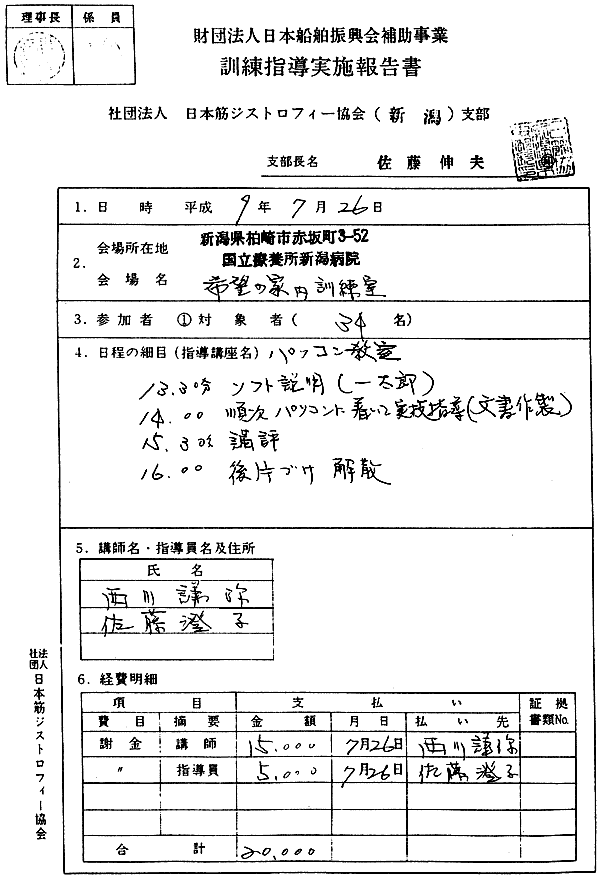 理事長 係員
財団法人日本船舶振興会補助事業
訓練指導実施報告書
社団法人 日本筋ジストロフィー協会(新潟)支部
支部長名 佐藤伸夫
1.日 時 平成 9年 7月26日
2.会場所在地 新潟県柏崎市赤坂町3-52
国立療養所新潟病院
会場名 希望の家内訓練室
3.参加者 ①対象者( 34 名)
4.日程の細目(指導講座名)パソコン教室
13.30分 ソフト説明(一太郎)
14.00 順次パソコンに着いて実技指導(文書作製)
15.30分 講評
16.00 後片づけ 解散
5.講師名・指導員名及住所
氏名
西川議弥
佐藤澄子
6.経費明細
項目 支払い 証拠書類No.
費目 摘要 金額 月日 払い先
謝金 講師 15,000 7月26日 西川議弥
〃 指導員 5,000 7月26日 佐藤澄子
合計 20,000
社団法人日本筋ジストロフィー協会